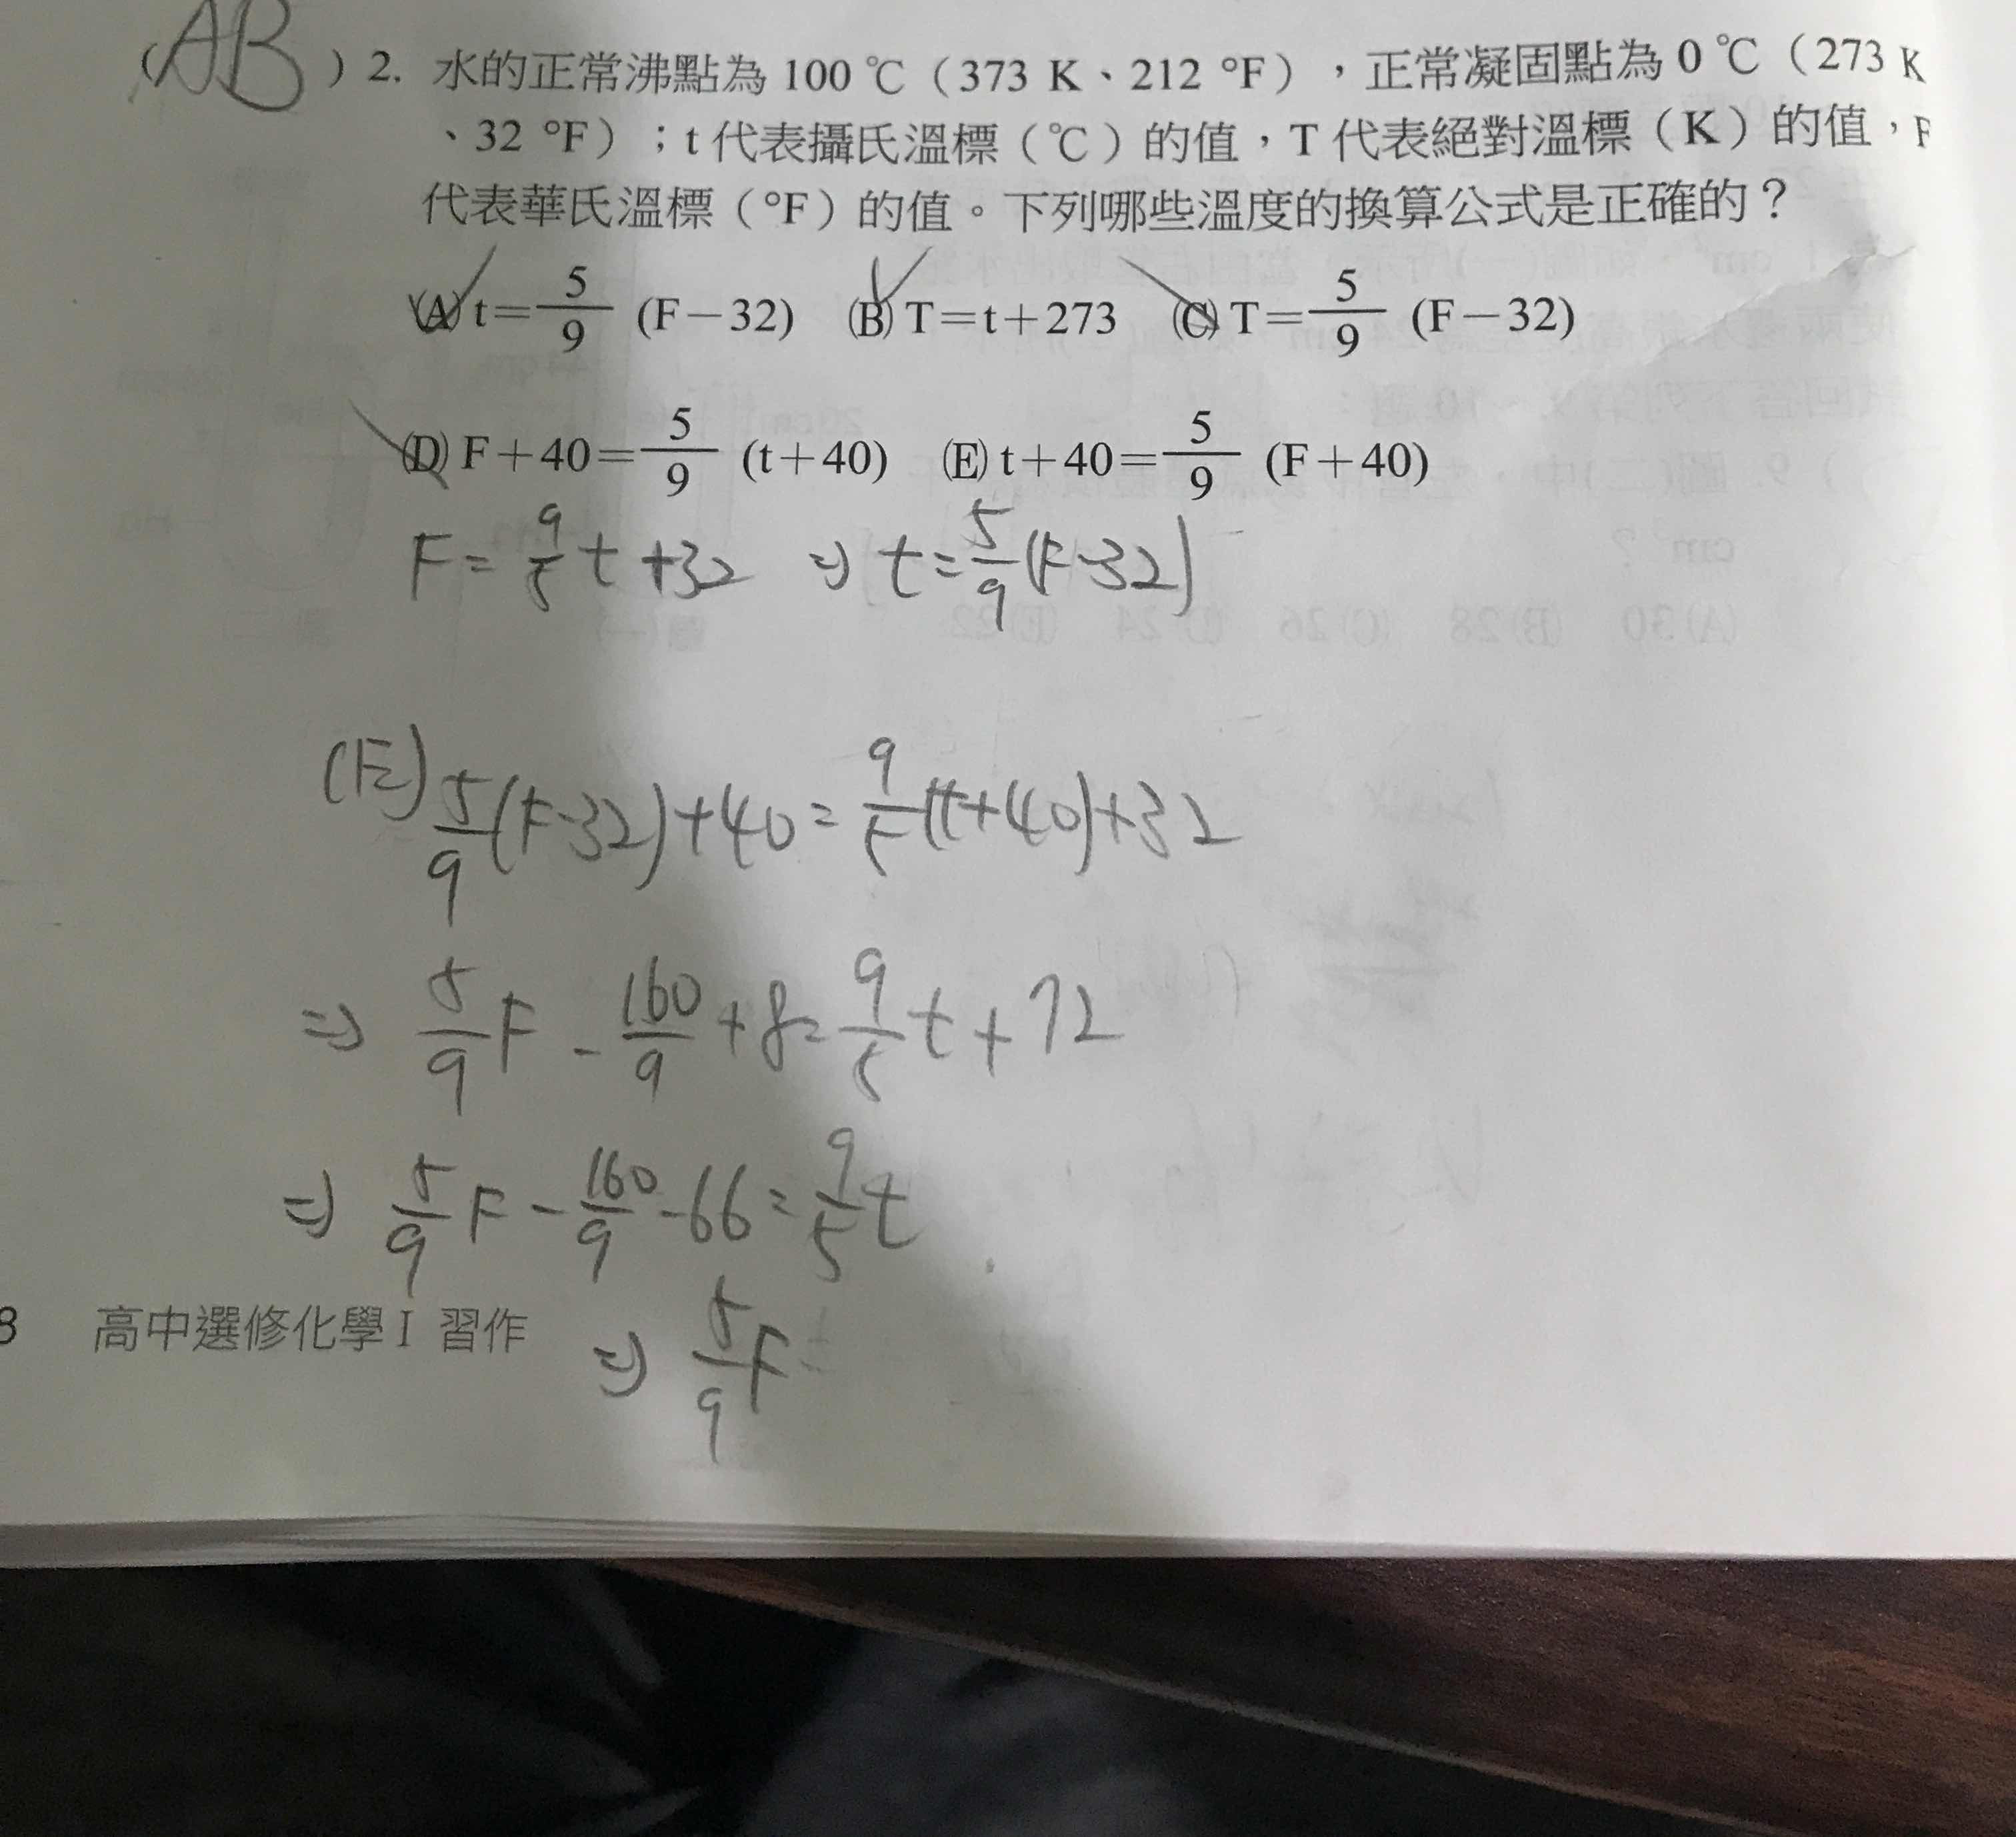 (AB) 2. 水的正常沸點為 100 ℃（373 K、212 °F），正常凝固點為 0 ℃（273 K
、32 °F）；t 代表攝氏溫標（℃）的值，T 代表絕對溫標（K）的值，F
代表華氏溫標（°F）的值。下列哪些溫度的換算公式是正確的？
(A) t=5/9 (F-32) (B) T=t+273 (C) T=5/9 (F-32)
(D) F+40=5/9 (t+40) (E) t+40=5/9 (F+40)
F=9/5 t+32 ⇒ t=5/9(F-32)
(E) 5/9(F-32)+40=9/5(t+40)+32
⇒ 5/9 F - 160/9 + 8 = 9/5 t + 72
⇒ 5/9 F - 160/9 - 66 = 9/5 t
⇒ 5/9 F =
高中選修化學 I 習作